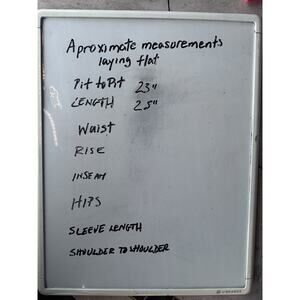 Aproximate measurements
laying flat
Pit to Pit 23"
LENGTH 25"
Waist
RISE
INSEAM
HIPS
SLEEVE LENGTH
SHOULDER TO SHOULDER